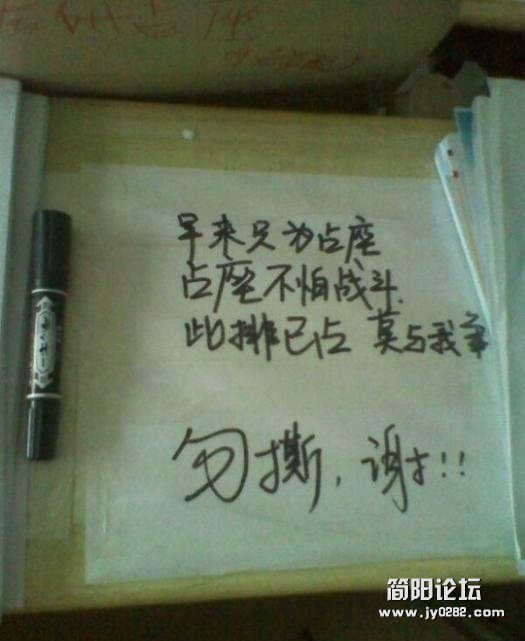 占座
早来只为占座
占座不怕战斗.
此排已占 莫与我争
勿撕, 谢!!
简阳论坛
www.jy0282.com